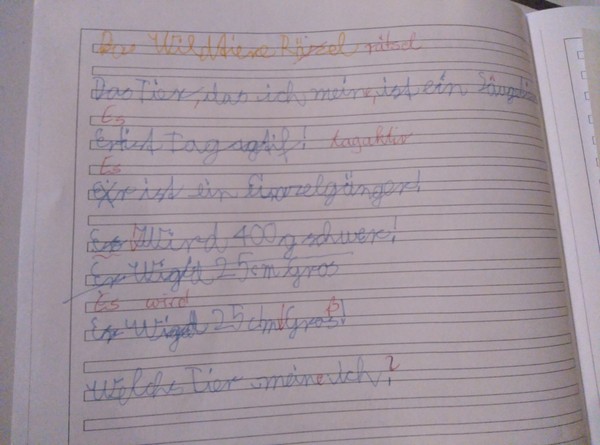 Das Wildtiere Räzel rätsel
Das Tier, das ich meine, ist ein
Es
Er ist Dag agtif! tagaktiv
Es
Er ist ein Einzelgänger!
Er Wird 400g schwer!
Er Wigt 25cm Gros
Es wird
Er 25cm Gros! ß
Welche Tier meine ich?